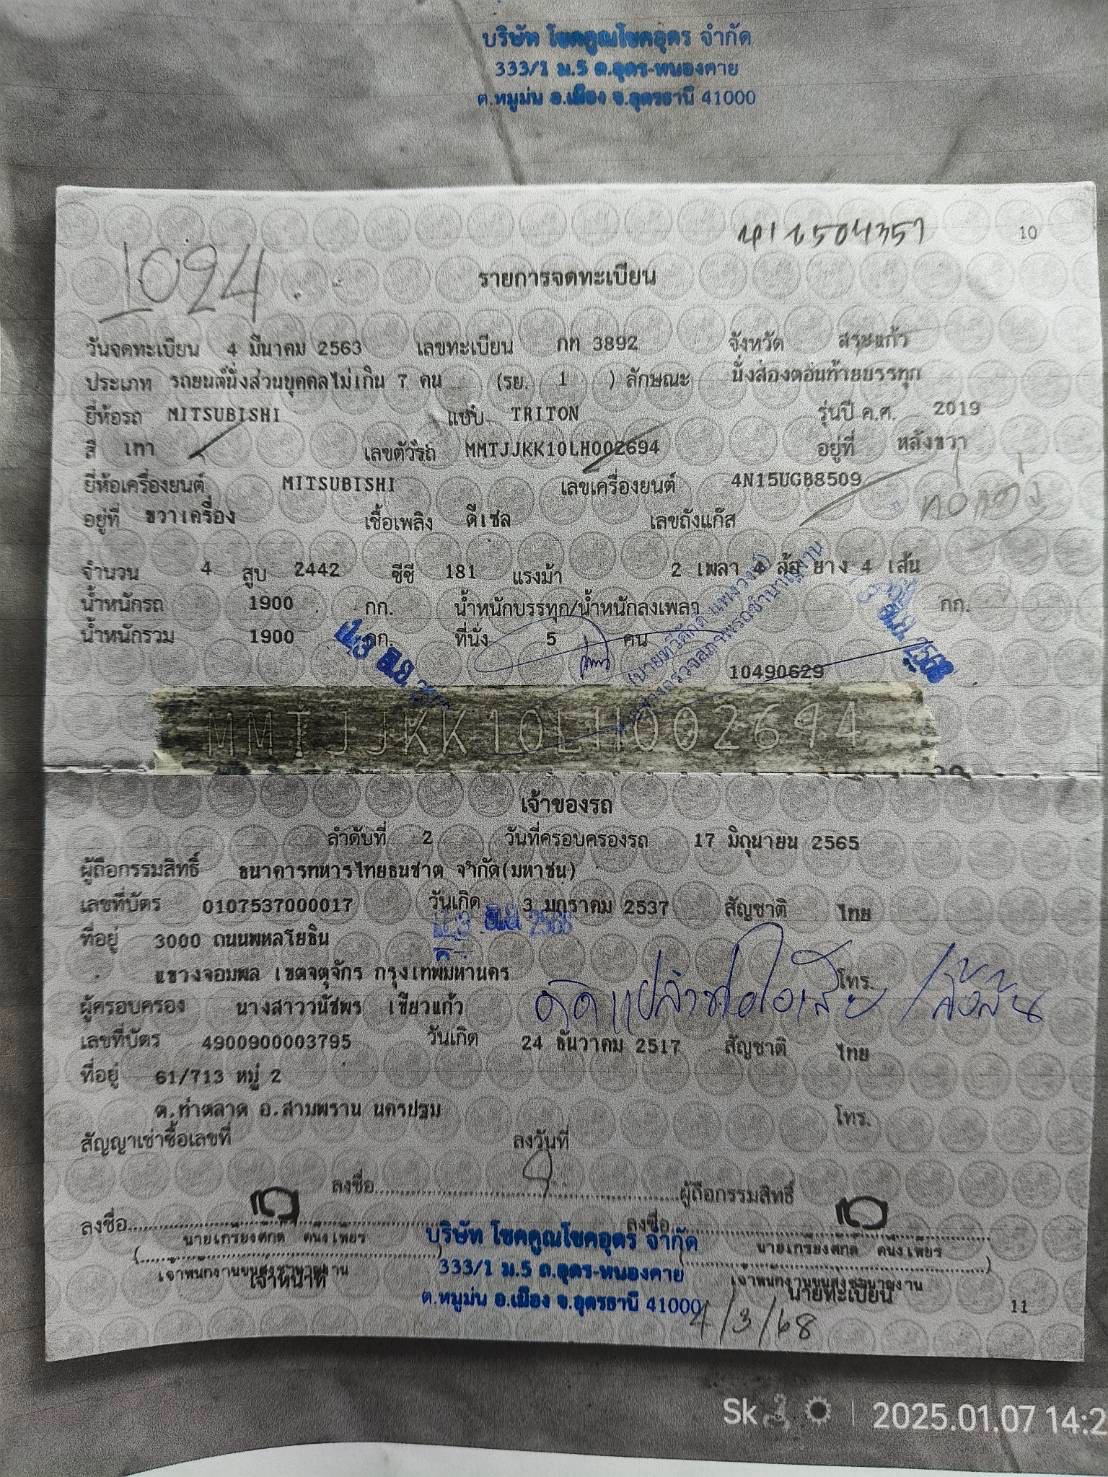 บริษัท โชคคูณโชคอุดร จำกัด
333/1 ม.5 ถ.อุดร-หนองคาย
ต.หมูม่น อ.เมือง จ.อุดรธานี 41000
10
1024
รายการจดทะเบียน
วันจดทะเบียน 4 มีนาคม 2563 เลขทะเบียน กท 3892 จังหวัด สระแก้ว
ประเภท รถยนต์นั่งส่วนบุคคลไม่เกิน 7 คน (รย. 1 ) ลักษณะ นั่งสองตอนท้ายบรรทุก
ยี่ห้อรถ MITSUBISHI แบบ TRITON รุ่นปี ค.ศ. 2019
สี เทา เลขตัวรถ MMTJJKK10LH002694 อยู่ที่ หลังขวา
ยี่ห้อเครื่องยนต์ MITSUBISHI เลขเครื่องยนต์ 4N15UGB8509
อยู่ที่ ขวาเครื่อง เชื้อเพลิง ดีเซล เลขถังแก๊ส
จำนวน 4 สูบ 2442 ซีซี 181 แรงม้า 2 เพลา 4 ล้อ ยาง 4 เส้น
น้ำหนักรถ 1900 กก. น้ำหนักบรรทุก/น้ำหนักลงเพลา กก.
น้ำหนักรวม 1900 กก. ที่นั่ง 5 คน
10490629
MMTJJKK10LH002694
เจ้าของรถ
ลำดับที่ 2 วันที่ครอบครองรถ 17 มิถุนายน 2565
ผู้ถือกรรมสิทธิ์ ธนาคารทหารไทยธนชาต จำกัด(มหาชน)
เลขที่บัตร 0107537000017 วันเกิด 3 มกราคม 2537 สัญชาติ ไทย
ที่อยู่ 3000 ถนนพหลโยธิน
แขวงจอมพล เขตจตุจักร กรุงเทพมหานคร โทร.
ผู้ครอบครอง นางสาววนัชพร เขียวแก้ว
เลขที่บัตร 4900900003795 วันเกิด 24 ธันวาคม 2517 สัญชาติ ไทย
ที่อยู่ 61/713 หมู่ 2
ต.ท่าตลาด อ.สามพราน นครปฐม โทร.
สัญญาเช่าซื้อเลขที่ ลงวันที่
ลงชื่อ ผู้ถือกรรมสิทธิ์
ลงชื่อ ลงชื่อ
นายเกรียงศักดิ์ คนึงเพียร นายเกรียงศักดิ์ คนึงเพียร
เจ้าพนักงานขนส่งชำนาญงาน เจ้าพนักงานขนส่งชำนาญงาน
เจ้าหน้าที่ นายทะเบียน
บริษัท โชคคูณโชคอุดร จำกัด
333/1 ม.5 ถ.อุดร-หนองคาย
ต.หมูม่น อ.เมือง จ.อุดรธานี 41000
4/3/68
11
2025.01.07 14:2